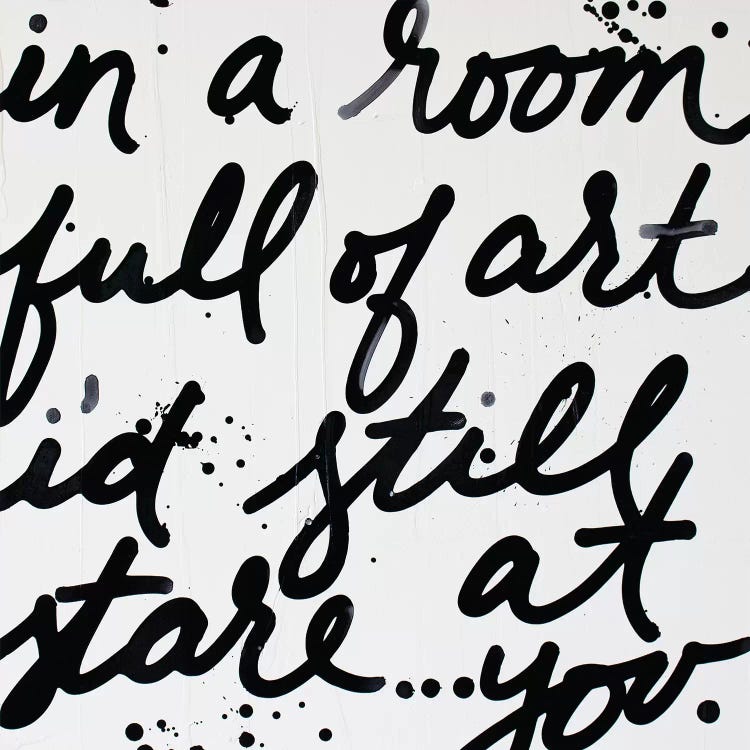 in a room
full of art
i'd still
stare at
...you.